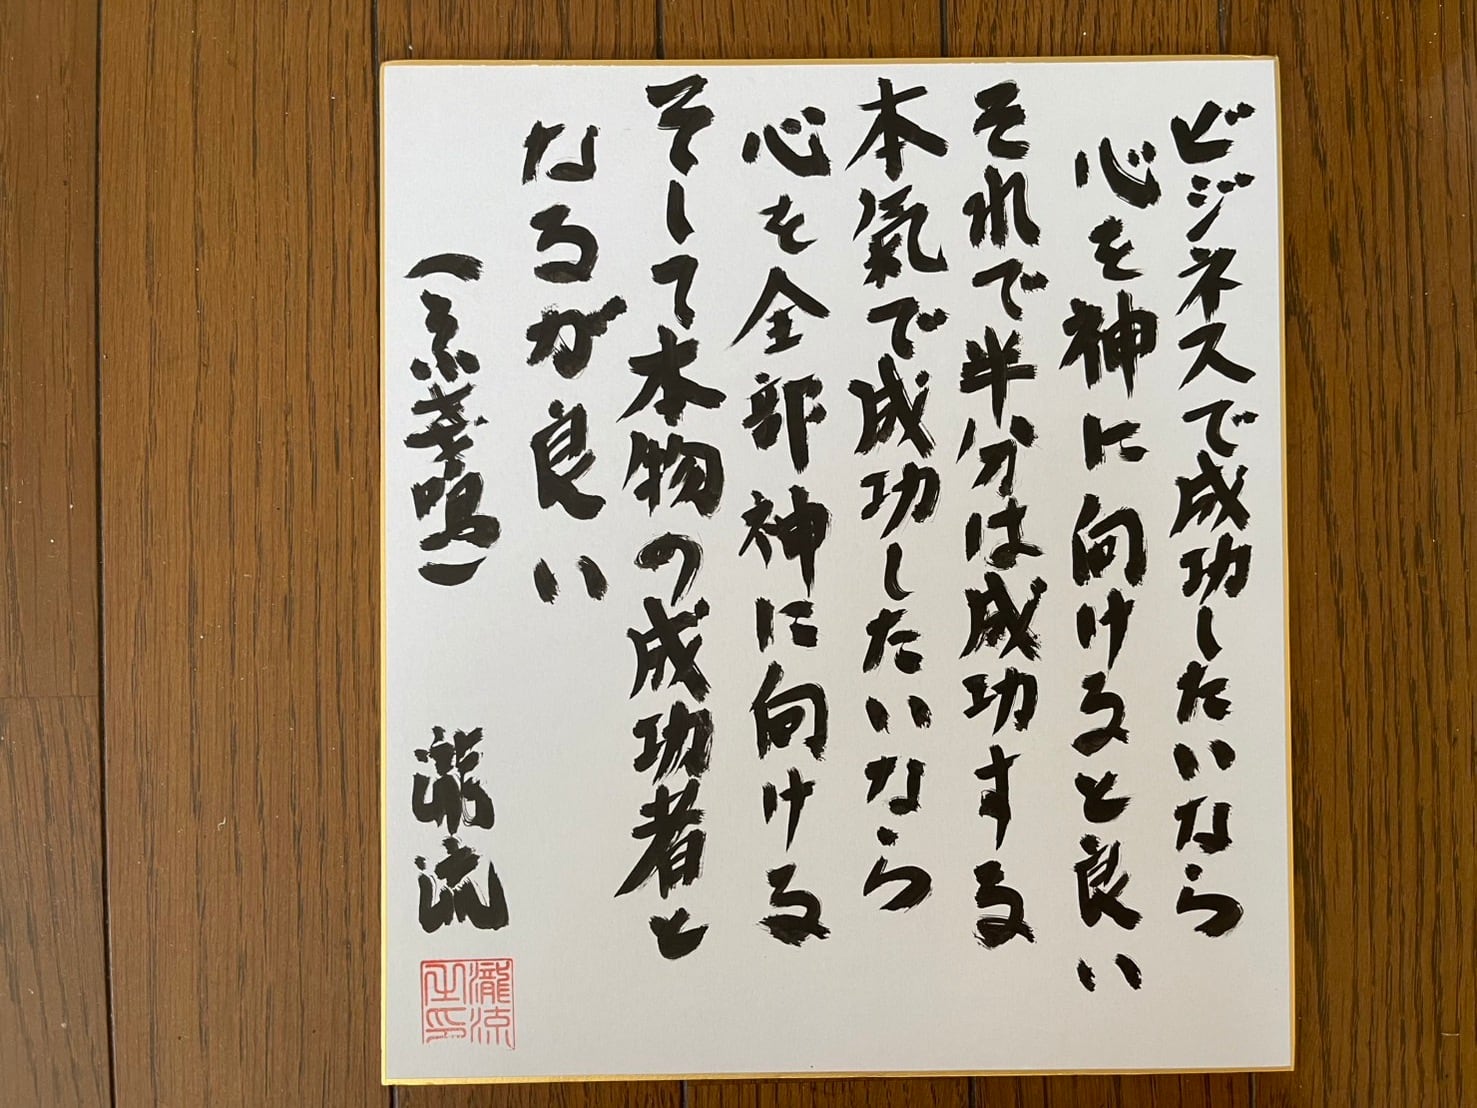 ビジネスで成功したいなら
心を神に向けると良い
それで半分は成功する
本氣で成功したいなら
心を全部神に向ける
そして本物の成功者と
なるが良い
瀧流
瀧流
之印